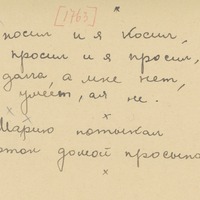 [1763]
носил и я носил,
просил и я просил,
дала, а мне нет,
умеет, а я не.
Марию потыкал
домой просыпа